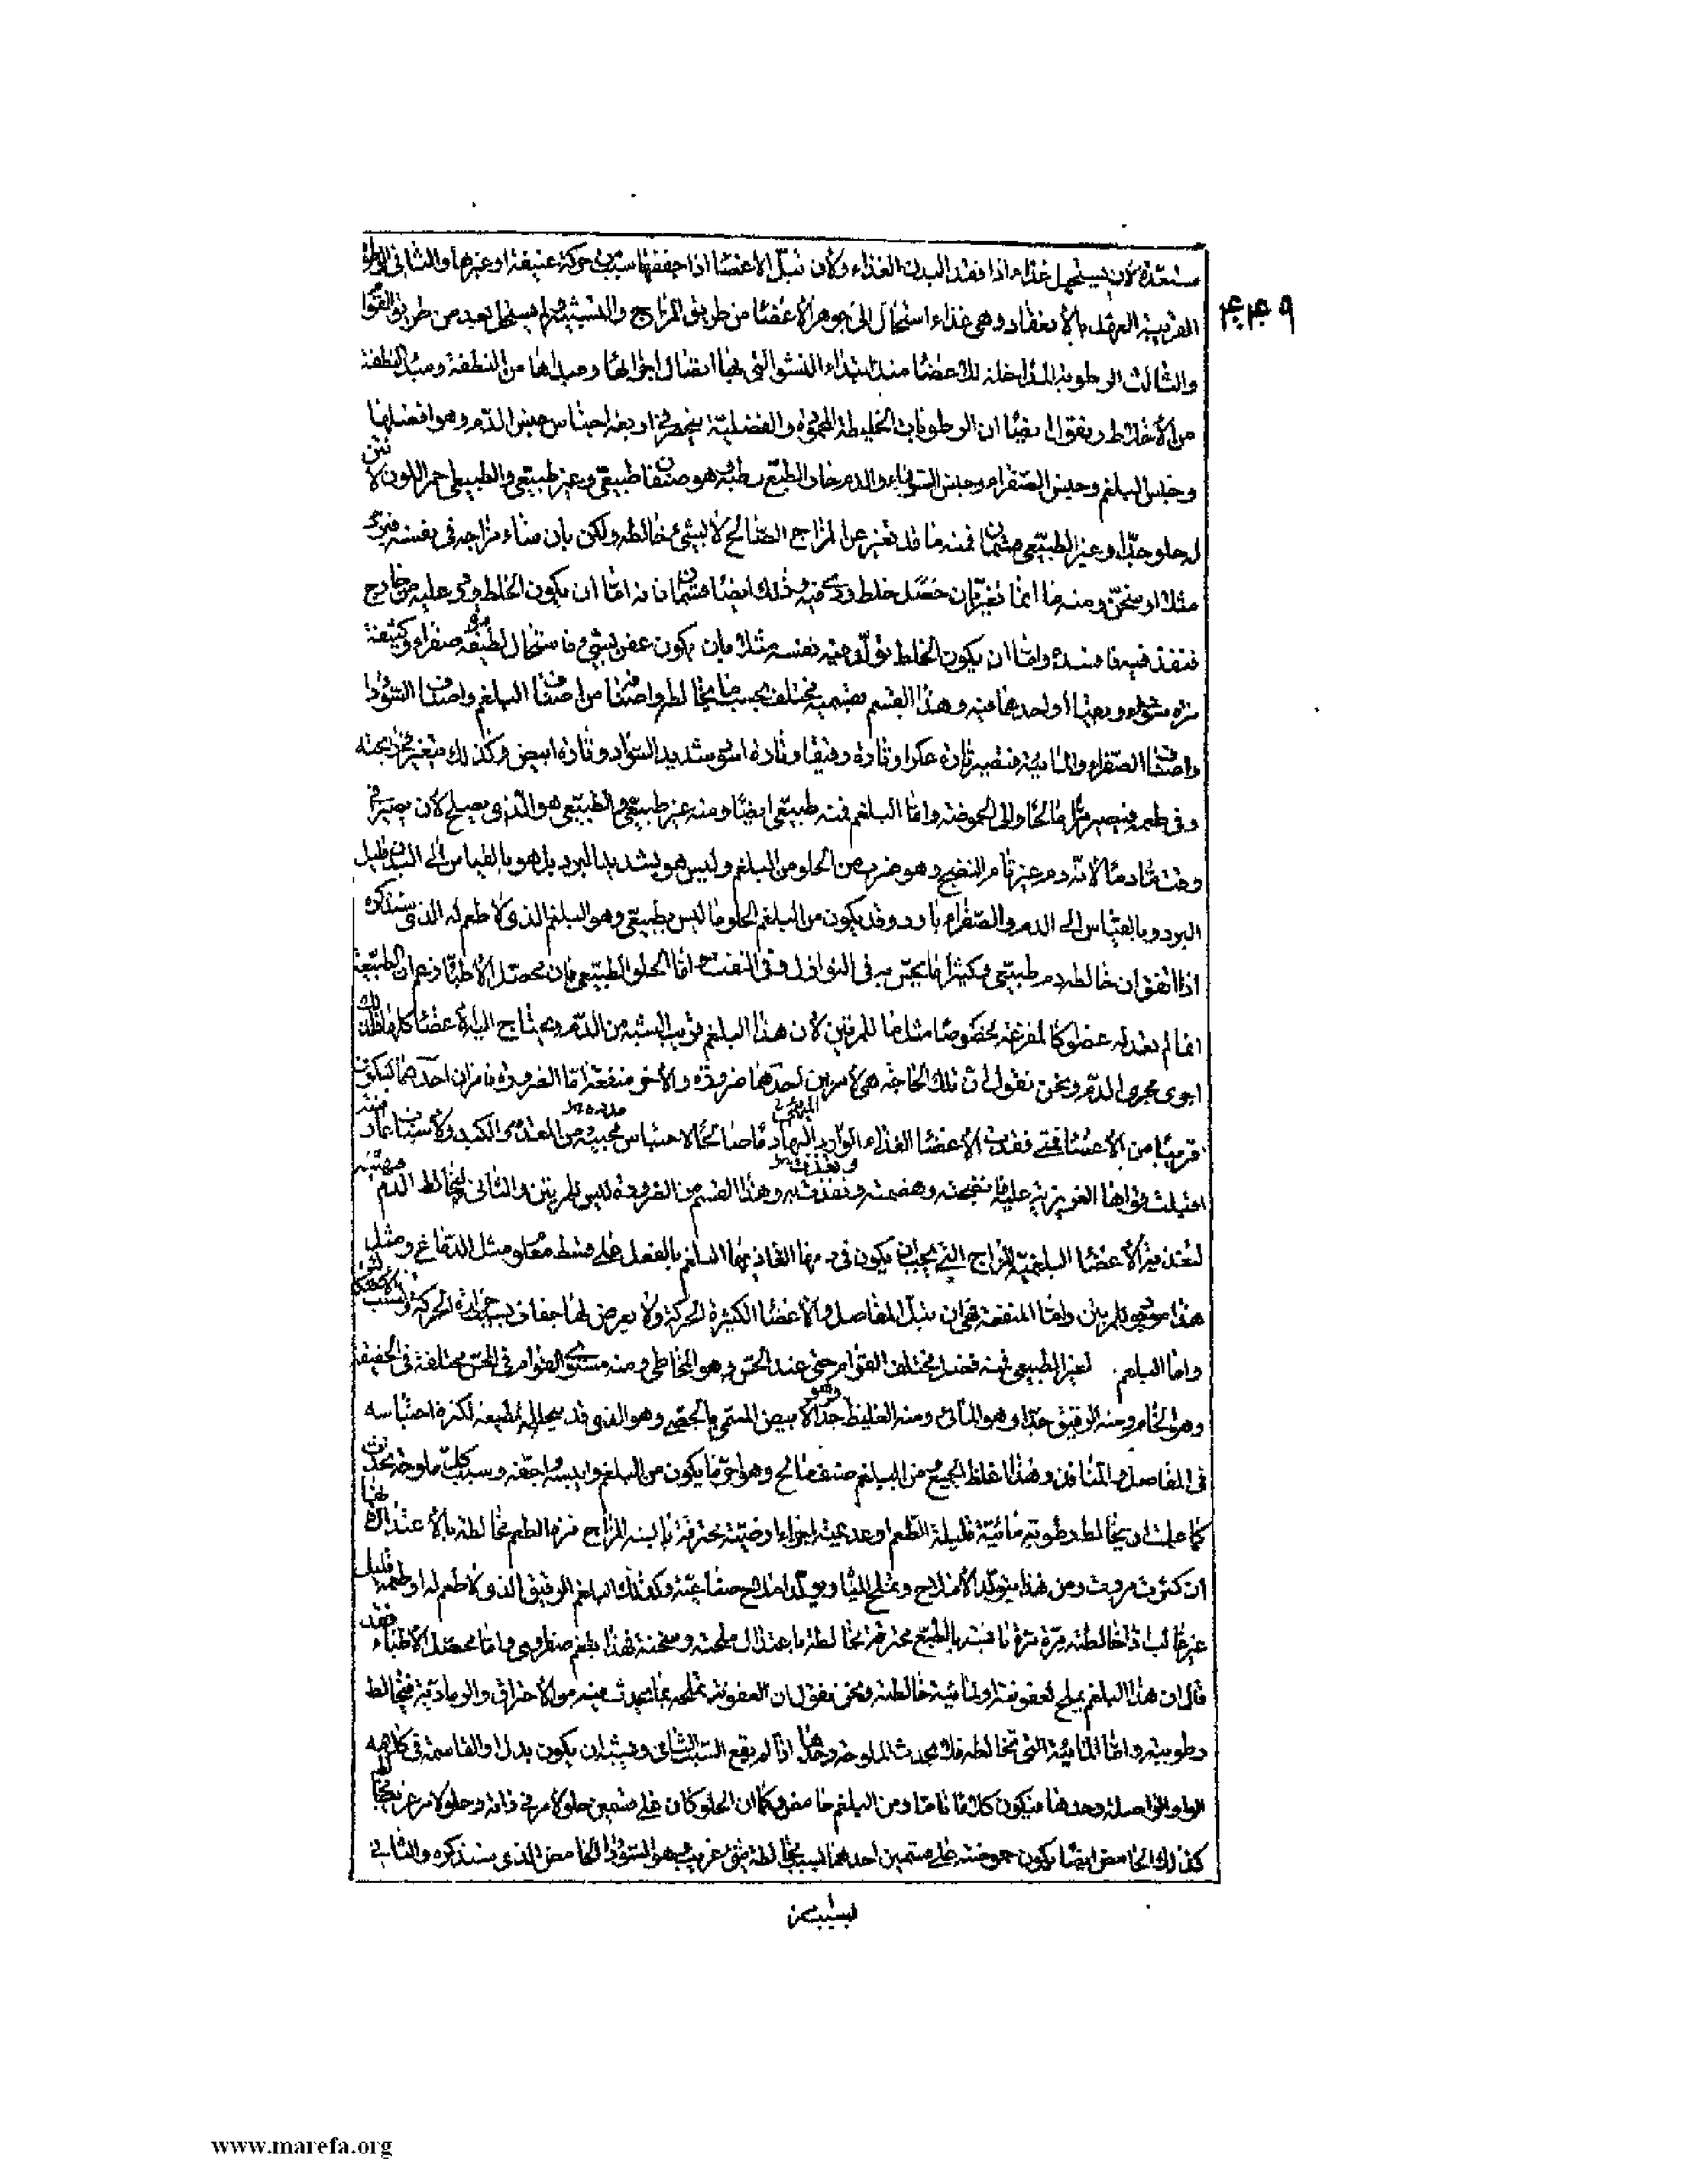 مستعدة لأن يستحيل غذاء اذا فقد البدن الغذاء ولأن تبل الاعضا اذا جففها سبب من حركة عنيفة او غيرها والثانى الرطوبة
القريبة العهد بالأنعقاد وهى غذاء استحال الى جوهر الأعضا من طريق المزاج والتشبيه ولم يستحل بعد من طريق القوام
والثالث الرطوبة المداخلة للاعضا منذ ابتداء النشو التى بها اتصال اجزائها ومبداها من النطفة ومبدأ النطفة
من الأخلاط ونقول ايضا ان الرطوبات الخلطية المحمودة والفضلية ينحصر فى اربعة اجناس جنس الدم وهو افضلها
وجنس البلغم وجنس الصفراء وجنس السوداء والدم حار الطبع رطبه وهو صنفان طبيعى وغير طبيعى والطبيعى احمر اللون لا نتن
له حلو جدا وغير الطبيعى قسمان فمنه ما قد تغير عن المزاج الصالح لا لشىء خالطه ولكن بان ساء مزاجه فى نفسه فبرد
مثلا او سخن ومنه ما انما تغير بان حصل خلط ردى فيه وذلك ايضا قسمان فانه اما ان يكون الخلط ورد عليه من خارج
فنفذ فيه فافسده واما ان يكون الخلط تولد فيه نفسه مثلا بان يكون عفن بعضه فاستحال لطيفه مرة صفراء وكثيفه
مرة سوداء وبقيا او احدهما فيه وهذا القسم بقسميه مختلف بحسب ما يخالطه واصنافه من اصناف البلغم واصناف السودا
واصناف الصفراء والمائية فيصير تارة عكرا وتارة رقيقا وتارة اسود شديد السواد وتارة ابيض وكذلك يتغير فى رائحته
وفى طعمه فيصير مرا ومالحا والى الحموضة واما البلغم فمنه طبيعى ايضا ومنه غير طبيعى والطبيعى هو الذى يصلح لأن يصير فى
وقت ما دما لأنه دم غير تام النضج وهو ضرب من الحلو من البلغم وليس هو بشديد البرد بل هو بالقياس الى البدن قليل
البرد وبالقياس الى الدم والصفراء بارد وقد يكون من البلغم الحلو ما ليس بطبيعى وهو البلغم الذى لا طعم له الذى سنذكره
اذا اتفق ان خالطه دم طبيعى وكثيرا ما يحس به فى النوازل وفى النفث اما الحلو الطبيعى فان محصل الأطبا زعم ان الطبيعة
انما لم يعد له عضوا كالمفرغة مخصوصا مثل ما للمرتين لأن هذا البلغم قريب الشبه من الدم ويحتاج اليه الأعضا كلها فلذلك
اجرى مجرى الدم ونحن نقول ان تلك الحاجة هى لأمرين احدهما ضرورة والآخر منفعة اما الضرورة فامران احدهما ليكون
قريبا من الأعضا فمتى فقدت الأعضا الغذاء الوارد اليها دما صالحا لاحتباس مدده من المعدة والكبد ولأسباب عارضة
اقبلت قواها الغريزية عليه فانضجته وهضمته وتغذت به وهذا القسم من الضرورة ليس للمرتين والثانى ليخالط الدم فيهيئه
لتغذية الأعضا البلغمية المزاج التى يجب ان يكون فى دمها الغاذيها البلغم بالفعل على قسط معلوم مثل الدماغ ومثل
هذا موجود للمرتين واما المنفعة فهى ان تبل المفاصل والأعضا الكثيرة الحركة ولا يعرض لها جفاف بسبب حرارة الحركة وبسبب الاحتكاك
واما البلغم لغير الطبيعى فمنه فضلى مختلف القوام حتى عند الحس وهو المخاطى ومنه مستوى القوام فى الحس مختلفة فى الحقيقة
وهو الخام ومنه الرقيق جدا وهو المائى ومنه الغليظ جدا وهو الأبيض المسمى بالجصى وهو الذى قد يتحلل لطيفه لكثرة احتباسه
فى المفاصل والمنافذ وهذا اغلظ الجميع ومن البلغم صنف مالح وهو احر ما يكون من البلغم وايبسه واجفه وسبب كل ملوحة تحدث
كما علمت ان يخالط رطوبة مائية قليلة الطعم او عديمته اجزاء ارضية محترقة يابسة المزاج مرة الطعم مخالطة بالأعتدال فانها
ان كثرت مررت ومن هذا يتولد الأملاح وتملح المياه ويولد املاح صناعية وكذلك البلغم الرقيق الذى لا طعم له او طعمه قليل
غير غالب اذا خالطته مرة مرة يابسة بالطبع محترقة مخالطة باعتدال ملحته وسخنته فهذا بلغم صفراوى واما محصل الأطباء فقد
قال ان هذا البلغم يملح لعفونته او لمائية خالطته ونحن نقول ان العفونة تملحه بما يحدث فيه من الأحتراق والرمادية فتخالط
رطوبته واما المائية التى تخالطه فلا يحدث الملوحة وحدها اذا لم يقع السبب الثانى ويشبه ان يكون بدل او القاسمة فى كلامه
الواو الواصلة وحدها فيكون كلاما تاما ومن البلغم حامض وكما ان الحلو كان على قسمين حلو لامر فى ذاته وحلو لامر غريب يخالطه
كذلك الحامض ايضا يكون حموضته على قسمين احدهما بسبب مخالطة شىء غريب هو السودا الحامض الذى سنذكره والثانى
بسبب من
۴۳۹
www.marefa.org